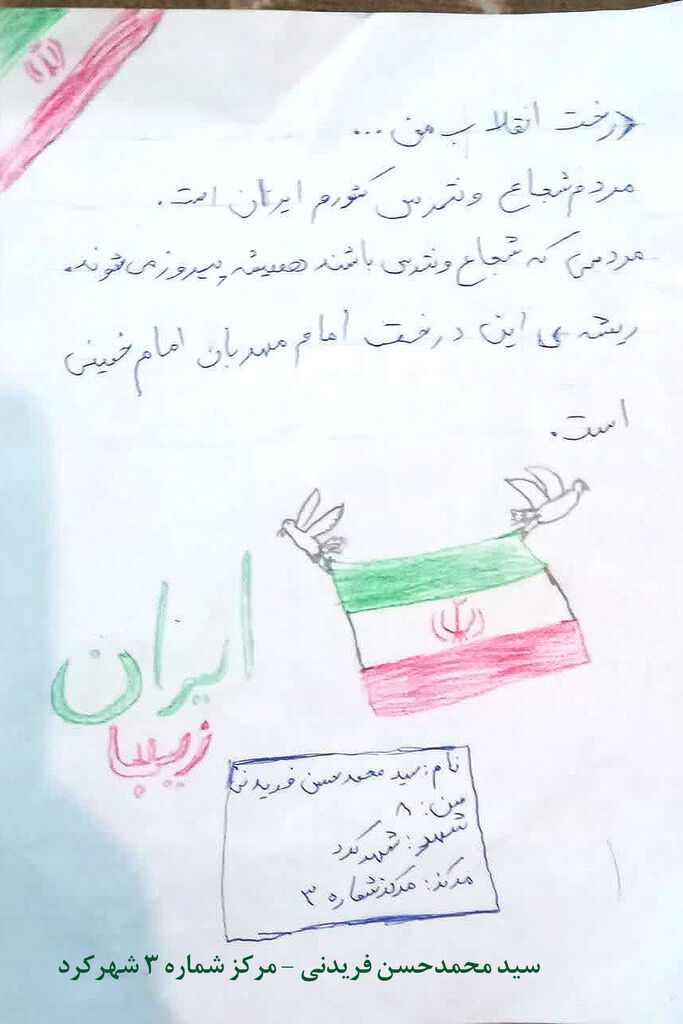 درخت انقلاب من ...
مردم شجاع و نترس کشورم ایران است.
مردمی که شجاع و نترس باشند همیشه پیروز می شوند.
ریشه ی این درخت امام مهربان امام خمینی
است.
ایران
زیبا
نام: سید محمدحسن فریدنی
سن: ۸
شهر: شهرکرد
مرکز: مرکز شماره ۳
سید محمدحسن فریدنی - مرکز شماره ۳ شهرکرد